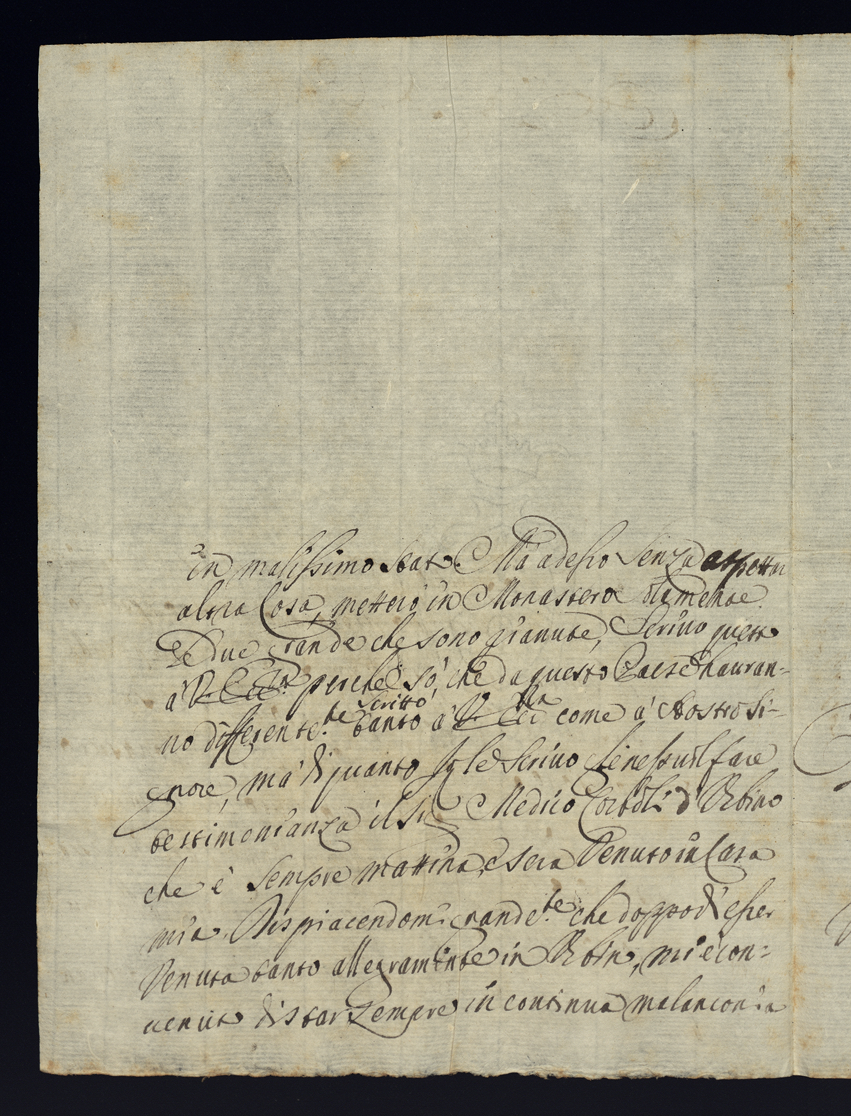 in malissimo stato. Mà adesso senza aspettar
altra Cosa, metterò in Monastero
le Due grande che sono granute, scrivo questo
à V. Ecc.za perche sò, che da questo Paese hauran-
no differente.te scritto tanto à V. Ecc.lla come à Nostro Si-
gnore, mà di quanto le scrivo fare
testimonianza il Sig. Medico d'Urbino
che è sempre mattina, e sera Venuto in Casa
mia. Dispiacendomi grande.te che doppo di esser
Venuta tanto allegramente in Urbino, mi è con-
uenuto di star sempre in continua malanconia